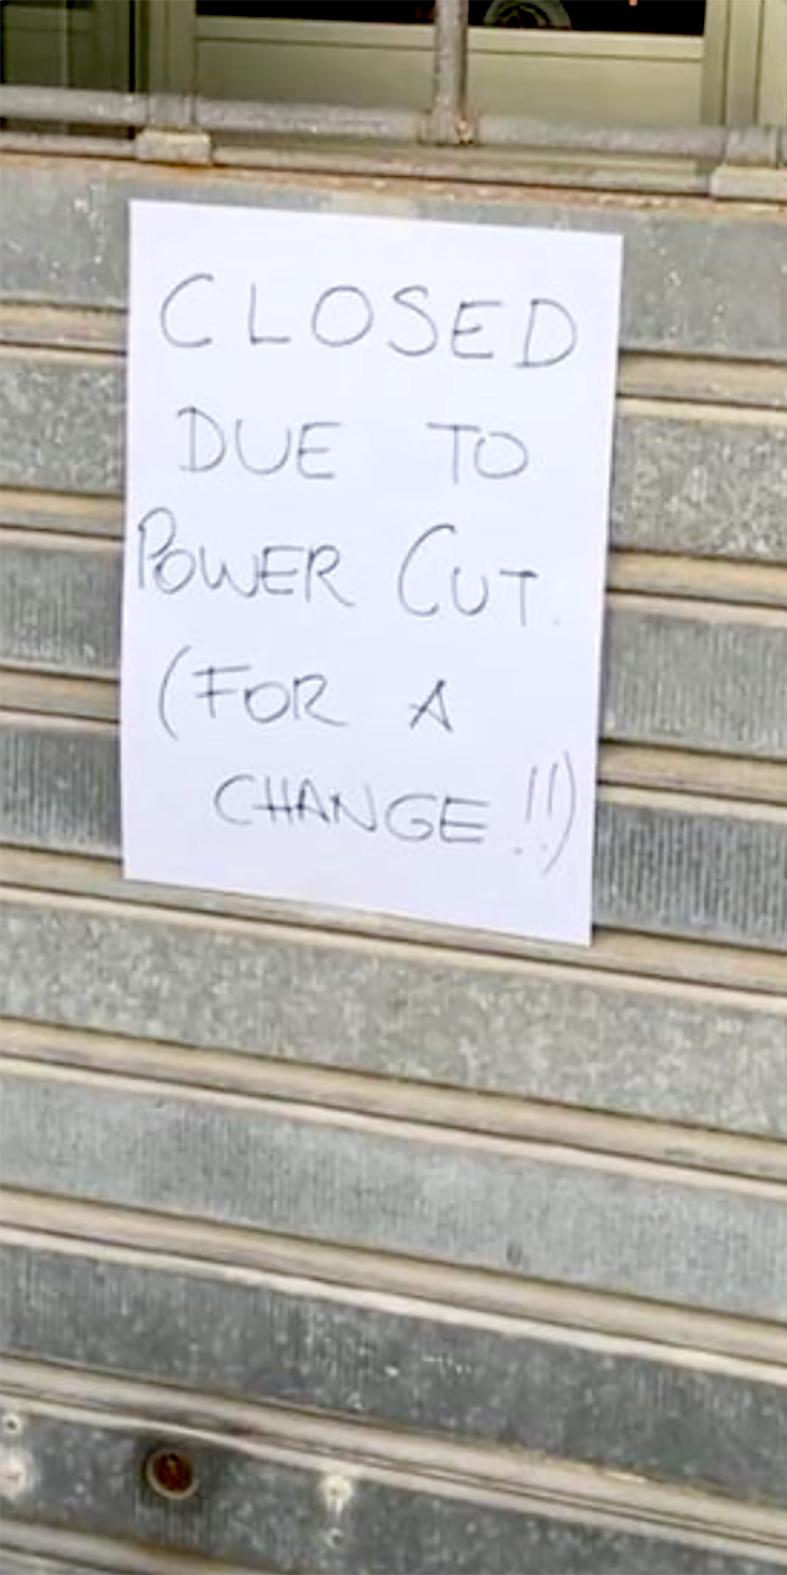 CLOSED
DUE TO
POWER CUT.
(FOR A
CHANGE!!)